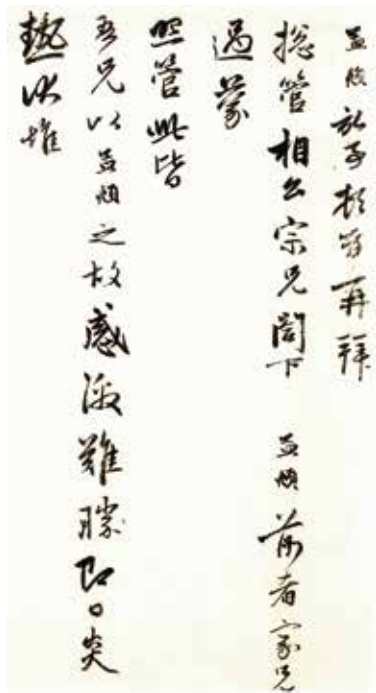 孟頫記事頓首再拜
總管相公宗兄閣下 孟頫前者家兄
過蒙
照管此皆
吾兄以孟頫之故感激難勝即日炎
熱伏惟